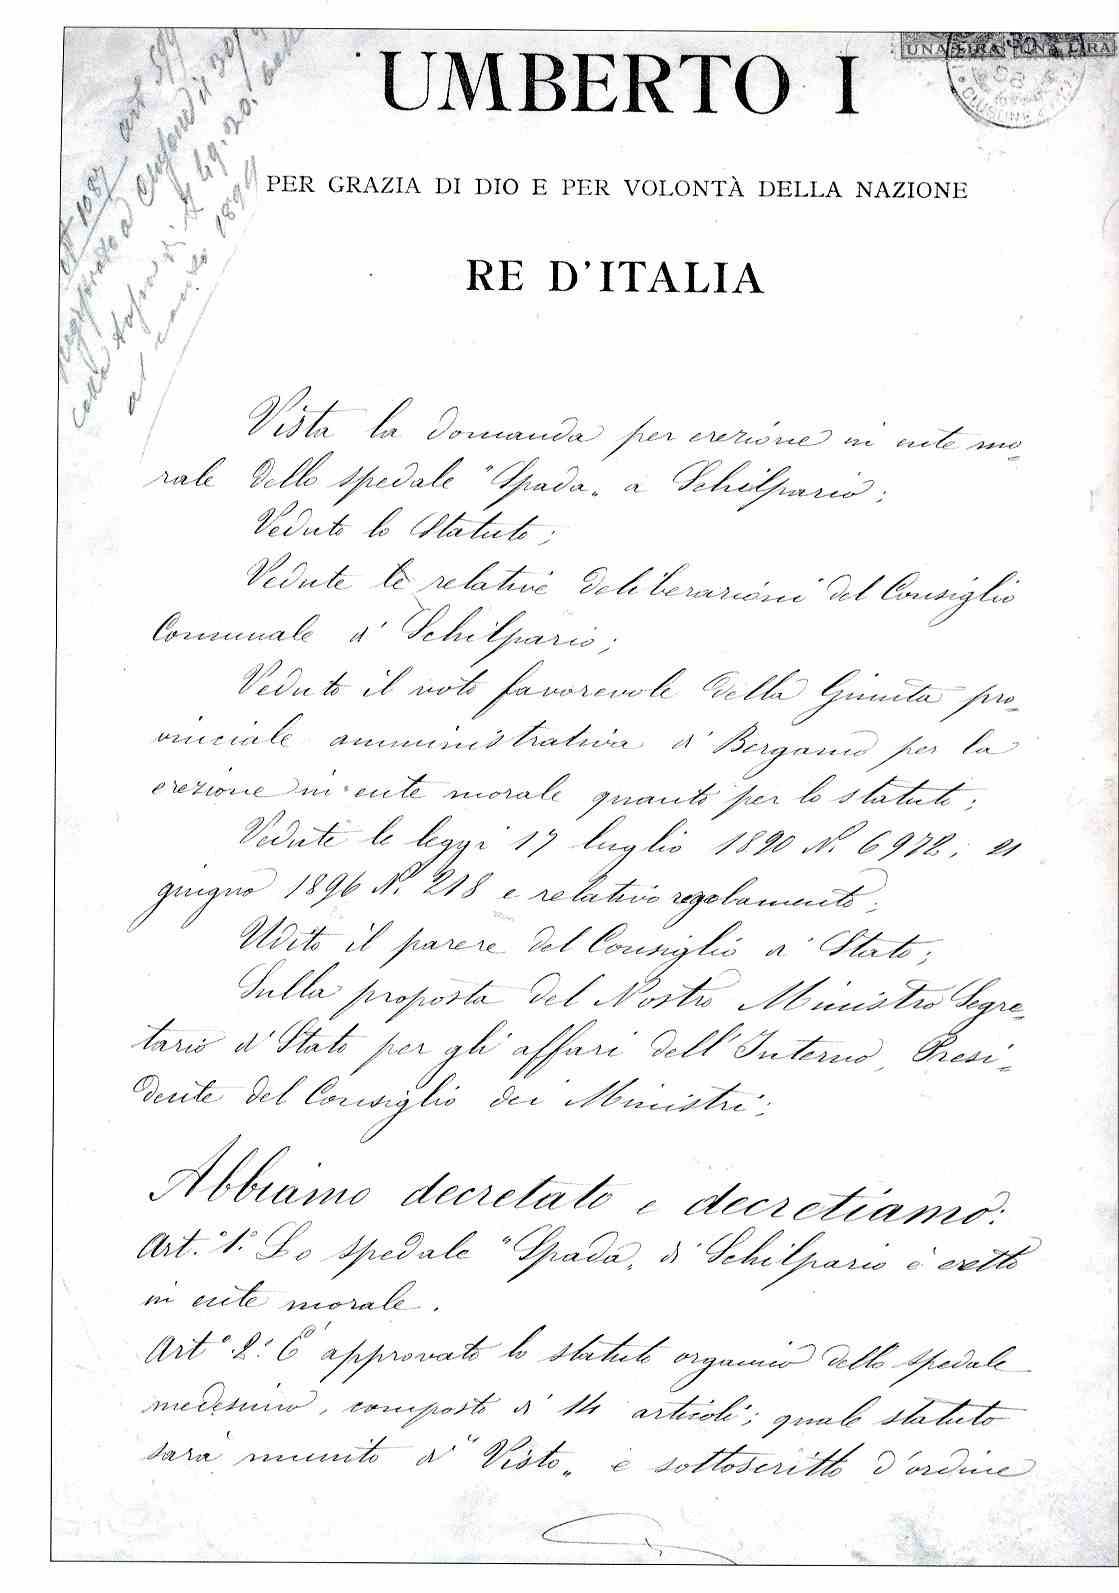 UMBERTO I
PER GRAZIA DI DIO E PER VOLONTÀ DELLA NAZIONE
RE D'ITALIA
UNA LIRA UNA LIRA
Nº 1087 art 599
registrato a Clusone il 309
colla tassa di L 49.20.
1897
Vista la domanda per erezione in ente mo-
rale dello spedale "Spada„ a Schilpario;
Veduto lo Statuto;
Vedute le relative deliberazioni del Consiglio
Comunale di Schilpario;
Veduto il voto favorevole della Giunta pro-
vinciale amministrativa di Bergamo per la
erezione in ente morale quanto per lo statuto;
Vedute le leggi 17 luglio 1890 N. 6972; 21
giugno 1896 N. 218 e relativo regolamento;
Udito il parere del Consiglio di Stato;
Sulla proposta del Nostro Ministro Segre-
tario di Stato per gli affari dell'Interno, Presi-
dente del Consiglio dei Ministri;
Abbiamo decretato e decretiamo:
Art.º 1.º Lo spedale "Spada„ di Schilpario è eretto
in ente morale.
Artº 2.º È approvato lo statuto organico dello spedale
medesimo, composto di 14 articoli; quale statuto
sarà munito di "Visto„ e sottoscritto d'ordine